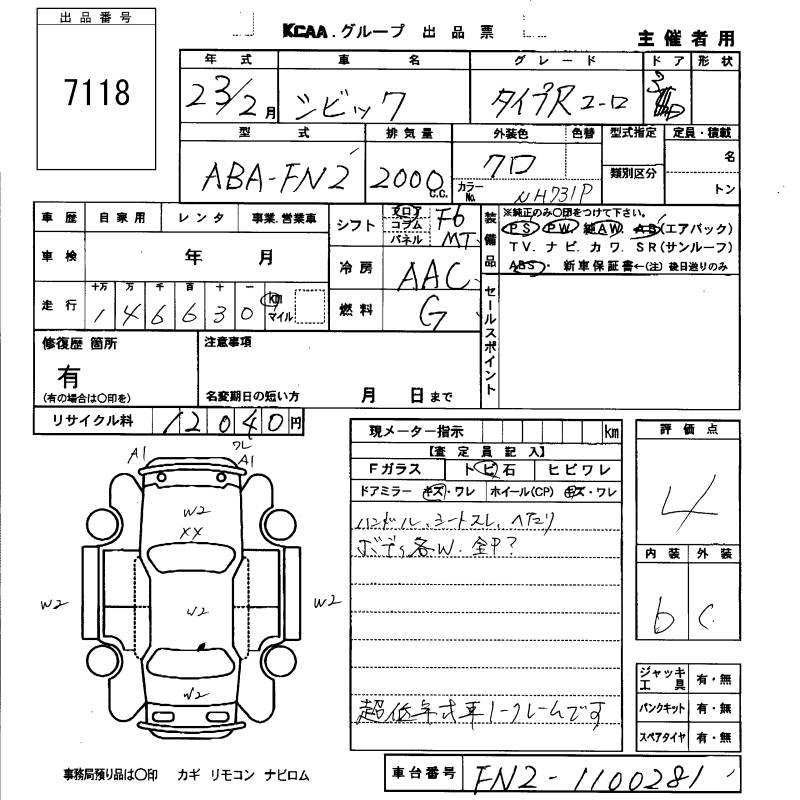 出品番号
7118
KCAA.グループ 出品票
主催者用
年式 車名 グレード ドア 形状
23/2月 シビック タイプR ユーロ 3
型式 排気量 外装色 色替 型式指定 定員・積載
ABA-FN2 2000 c.c. クロ 類別区分 名
カラーNo. NH731P トン
車歴 自家用 レンタ 事業.営業車
シフト フロア コラム パネル F6 MT
装備品 ※純正のみ○印をつけて下さい。
PS PW. 純AW. AB(エアバック)
TV. ナビ. カワ. SR(サンルーフ)
ABS・ 新車保証書←(注)後日送りのみ
車検 年 月
冷房 AAC
走行 十万 万 千 百 十 一
1 4 6 6 3 0 km マイル
燃料 G
セールスポイント
修復歴 箇所
有
(有の場合は○印を)
注意事項
名変期日の短い方 月 日まで
リサイクル料 12040円
現メーター指示 km
【査定員記入】
Fガラス トビ石 ヒビワレ
ドアミラー キズ・ワレ ホイール(CP) キズ・ワレ
ハンドル、シートスレ、ヘタリ
ボデー各W. 全P?
超低年式車ノークレームです
評価点
4
内装 外装
6 C
ジャッキ工具 有・無
パンクキット 有・無
スペアタイヤ 有・無
A1
ワレ
A1
W2
XX
W2
W2
W2
W2
事務局預り品は○印 カギ リモコン ナビロム
車台番号 FN2-1100281